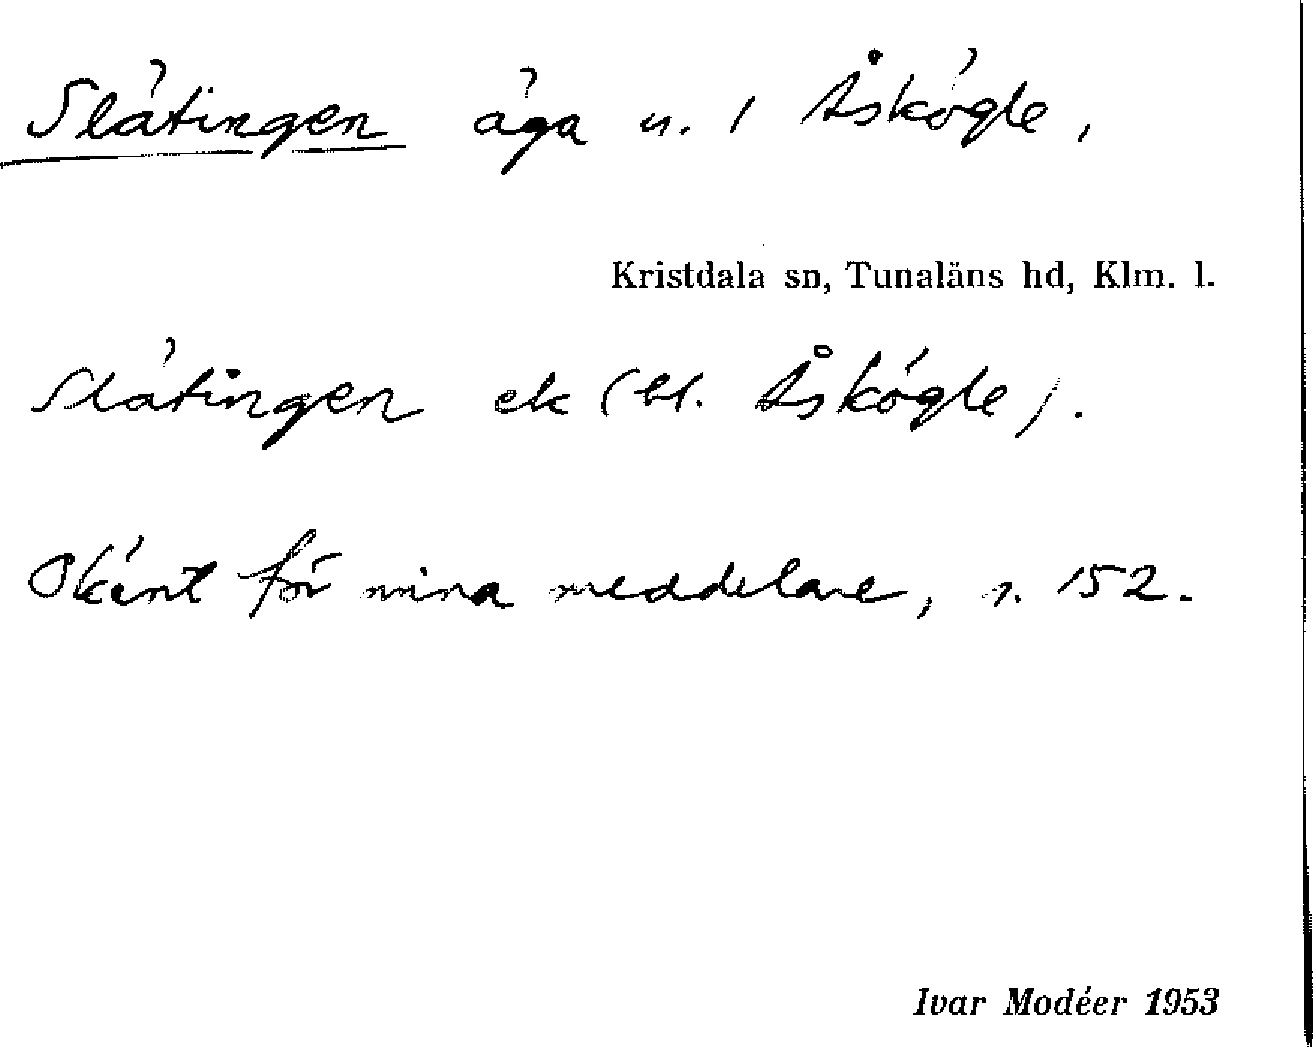 Slåtingen äga u. 1 Åskögle,
Kristdala sn, Tunaläns hd, Klm. l.
Slåtingen ek (bl. Åskögle).
Okänt för mina meddelare, s. 152.
Ivar Modéer 1953